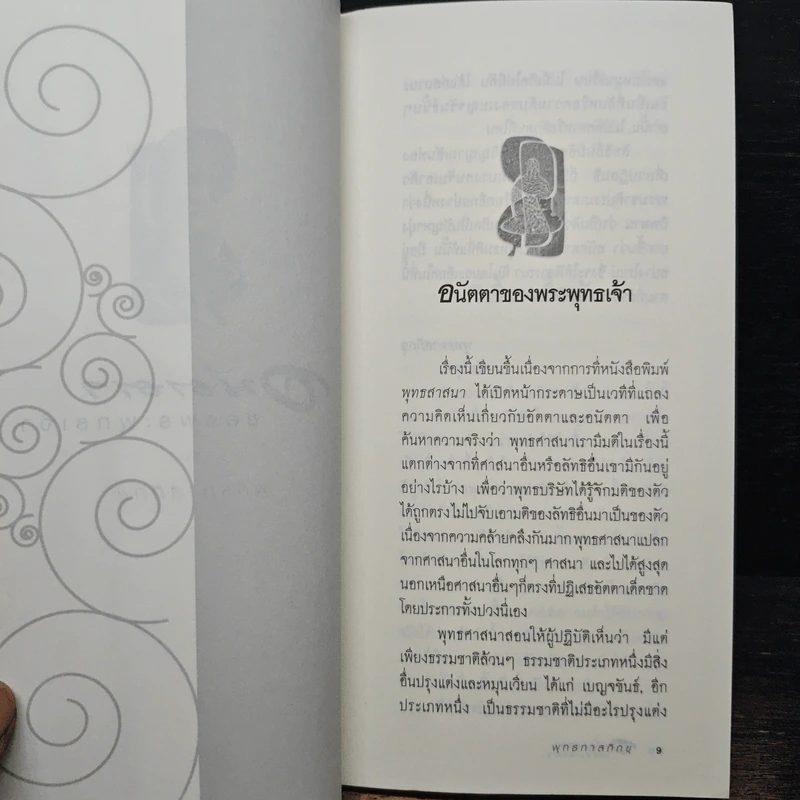 อนัตตาของพระพุทธเจ้า
เรื่องนี้ เขียนขึ้นเนื่องจากการที่หนังสือพิมพ์
พุทธสาสนา ได้เปิดหน้ากระดาษเป็นเวทีที่แถลง
ความคิดเห็นเกี่ยวกับอัตตาและอนัตตา เพื่อ
ค้นหาความจริงว่า พุทธศาสนาเรามีมติในเรื่องนี้
แตกต่างจากที่ศาสนาอื่นหรือลัทธิอื่นเขามีกันอยู่
อย่างไรบ้าง เพื่อว่าพุทธบริษัทได้รู้จักมติของตัว
ได้ถูกตรงไม่ไปจับเอามติของลัทธิอื่นมาเป็นของตัว
เนื่องจากความคล้ายคลึงกันมากพุทธศาสนาแปลก
จากศาสนาอื่นในโลกทุกๆ ศาสนา และไปได้สูงสุด
นอกเหนือศาสนาอื่นๆก็ตรงที่ปฏิเสธอัตตาเด็ดขาด
โดยประการทั้งปวงนี่เอง
พุทธศาสนาสอนให้ผู้ปฏิบัติเห็นว่า มีแต่
เพียงธรรมชาติล้วนๆ ธรรมชาติประเภทหนึ่งมีสิ่ง
อื่นปรุงแต่งและหมุนเวียน ได้แก่ เบญจขันธ์, อีก
ประเภทหนึ่ง เป็นธรรมชาติที่ไม่มีอะไรปรุงแต่ง
พุทธทาสภิกขุ 9